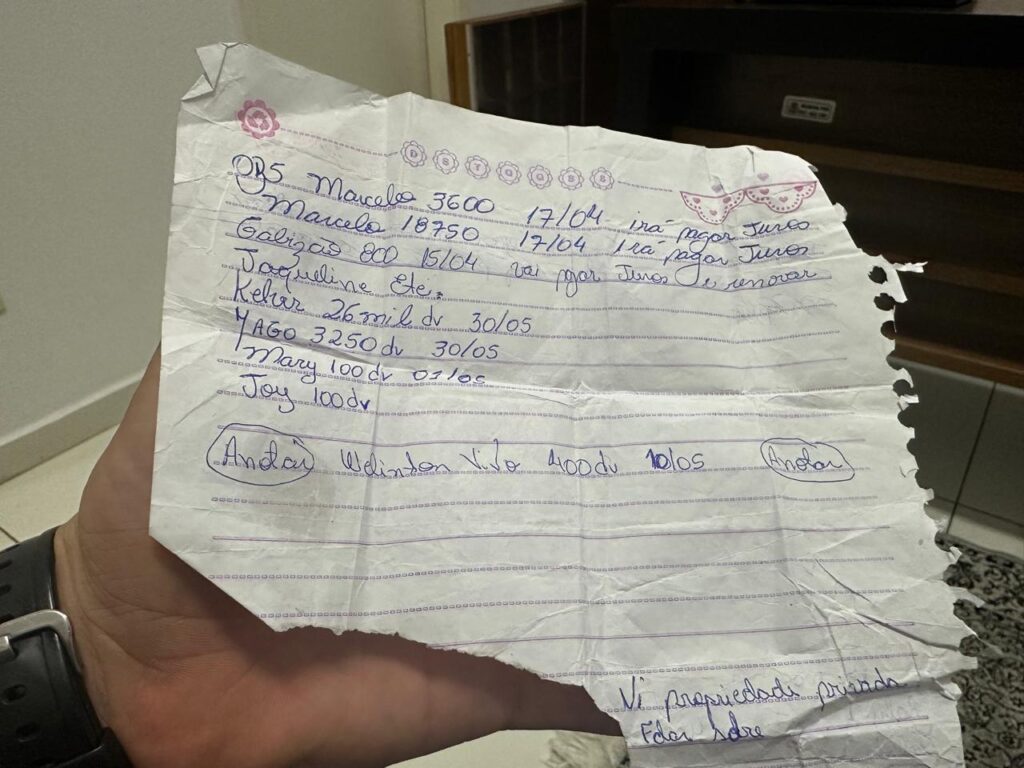 D S T Q Q S S
OBS Marcelo 3600 17/04 irá pagar Juros
Marcelo 18750 17/04 Irá pagar Juros
Galizão 800 15/04 vai pgar Juros e renovar
Jaqueline Etc.
Kelver 26mil dv 30/05
YAGO 3250 dv 30/05
Mary 100 dv
Joy 100 dv
Anotar Welinton Vivo 400 dv 10/05 Anotar
Vi propriedade privada